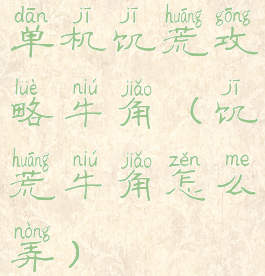 dān jī jī huāng gōng
单机饥荒攻
lüè niú jiǎo jī
略牛角（饥
huāng niú jiǎo zěn me
荒牛角怎么
nòng
弄）